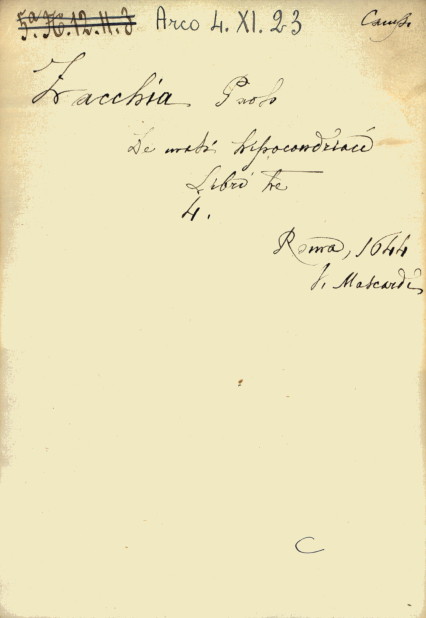 5.a H.12.H.J Arco 4. XI. 23 Camp.
Zacchia Paolo
De mali hipocondriaci
Libri tre
4.
Roma, 1644
V. Mascardi
C